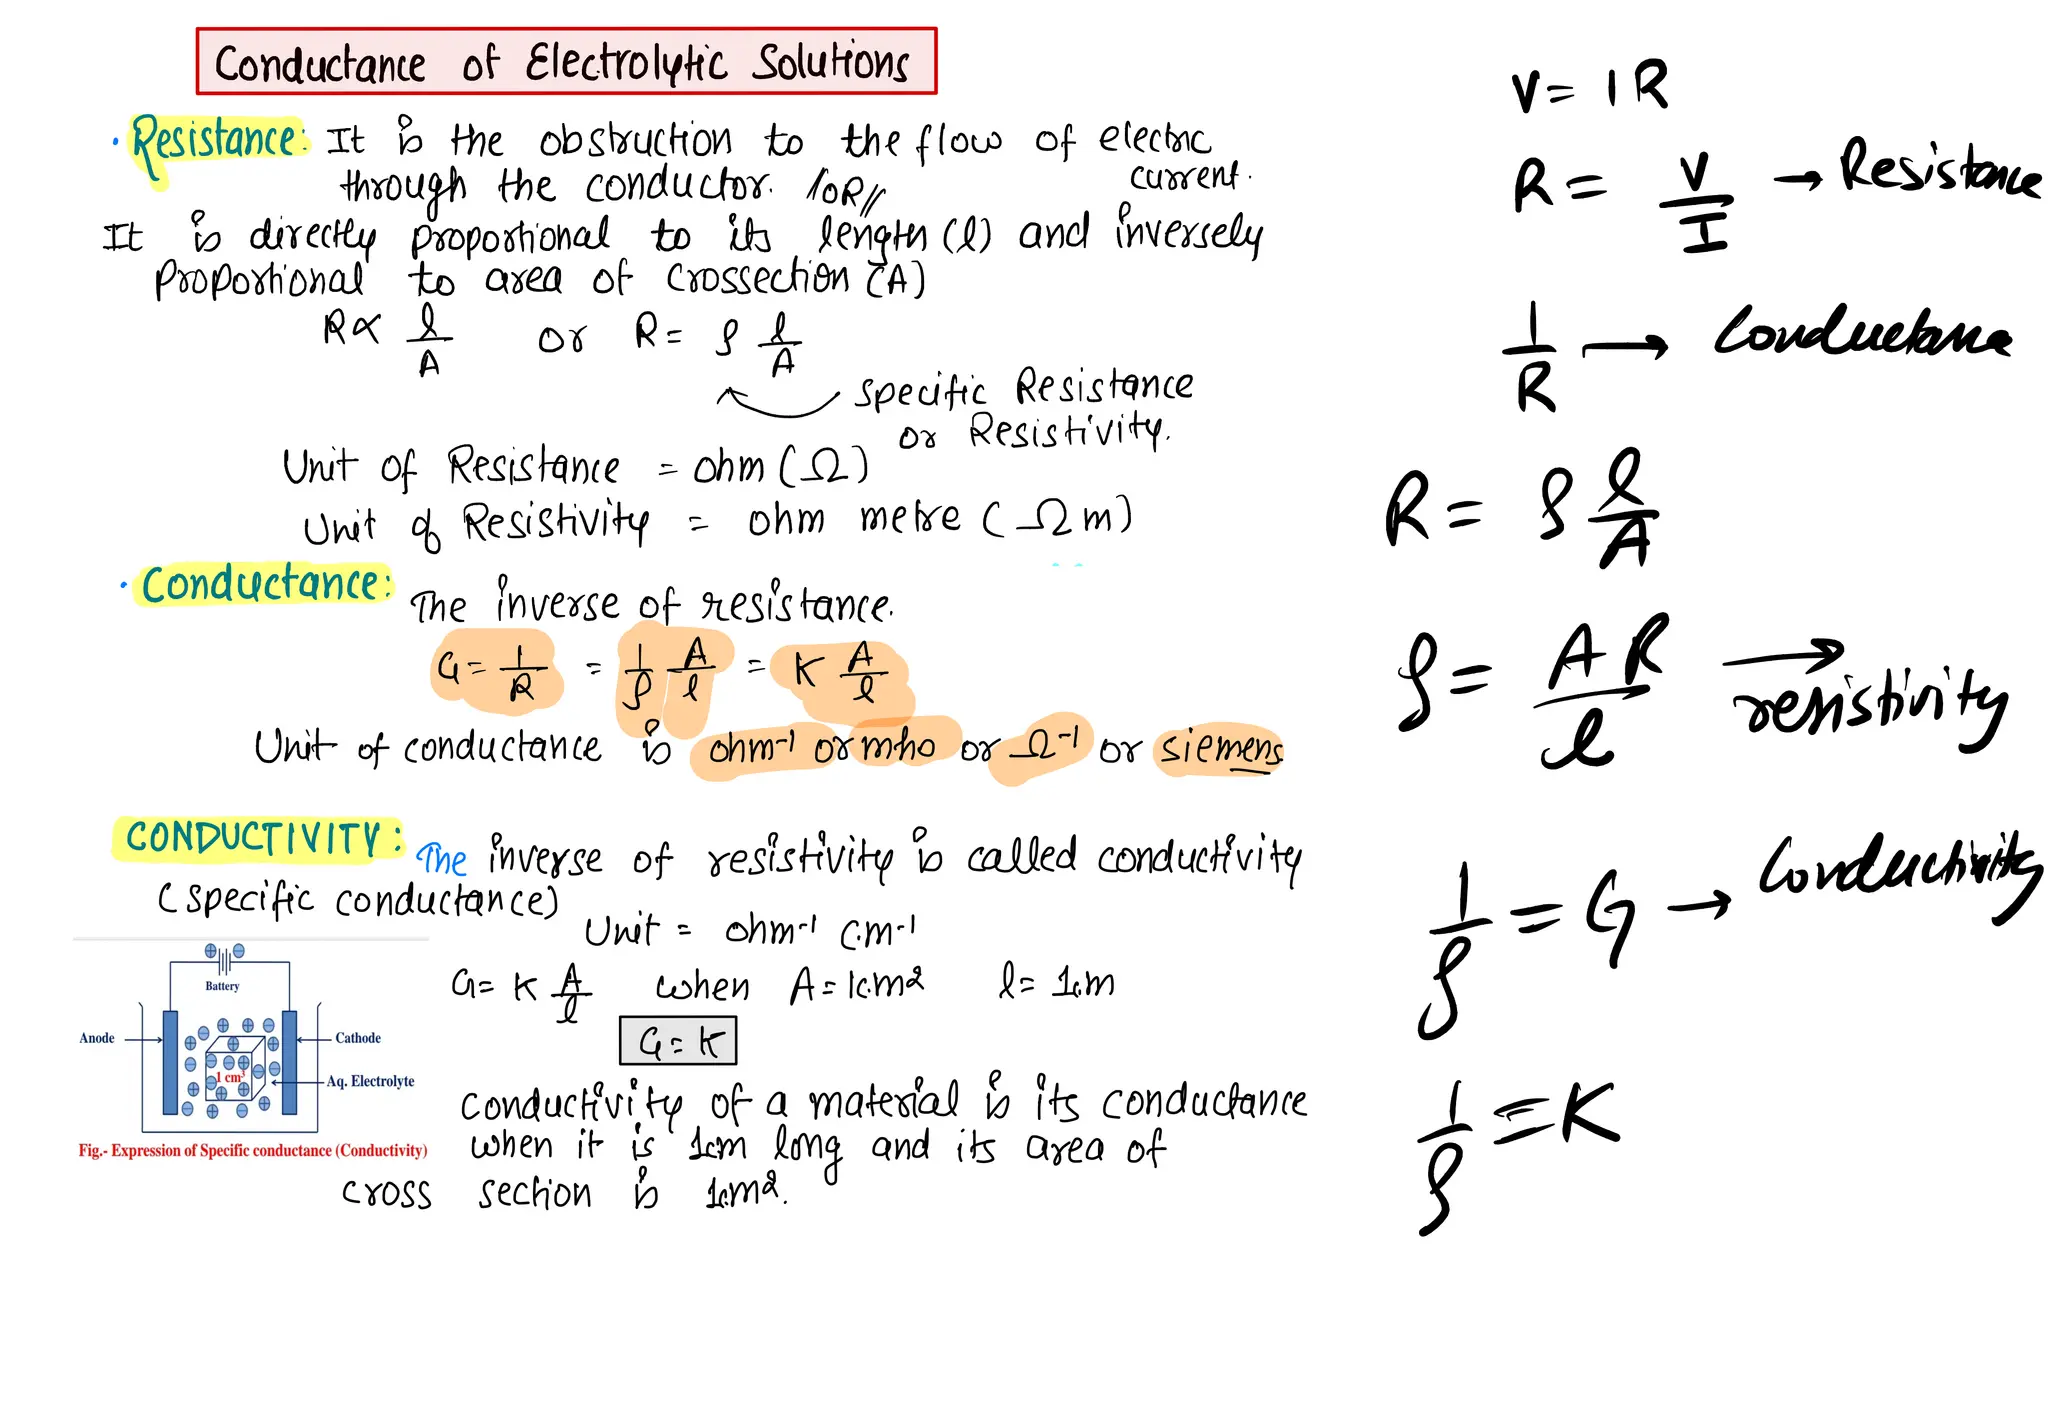 Conductance of Electrolytic Solutions
· Resistance: It is the obstruction to the flow of electric
through the conductor. //OR// current.
It is directly proportional to its length (l) and inversely
proportional to area of crossection (A)
R ∝ l/A or R = ρ l/A
specific Resistance
or Resistivity.
Unit of Resistance = ohm (Ω)
Unit of Resistivity = ohm metre (Ωm)
· Conductance: The inverse of resistance.
G = 1/R = 1/ρ A/l = K A/l
Unit of conductance is ohm-1 or mho or Ω-1 or siemens
CONDUCTIVITY: The inverse of resistivity is called conductivity
(specific conductance)
Unit = ohm-1 cm-1
G = K A/l when A = 1cm2 l = 1cm
G = K
conductivity of a material is its conductance
when it is 1cm long and its area of
cross section is 1cm2.
Battery
Anode
Cathode
1 cm3
Aq. Electrolyte
Fig.- Expression of Specific conductance (Conductivity)
V = IR
R = V/I → Resistance
1/R → Conductance
R = ρ l/A
ρ = AR/l → resistivity
1/ρ = G → Conductivity
1/ρ = K